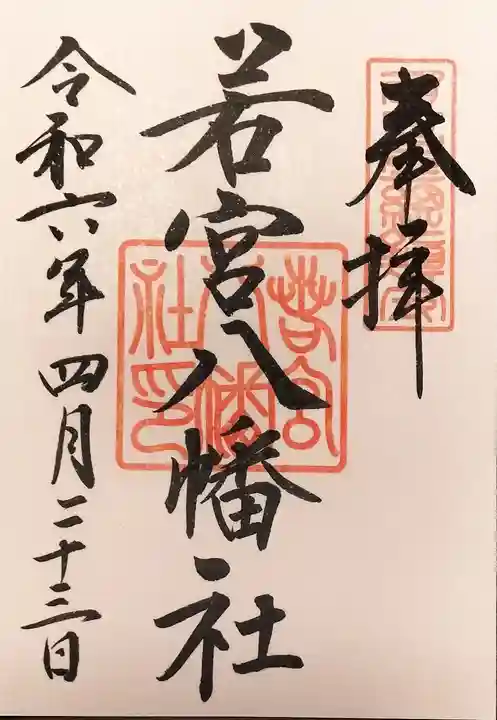 奉拝
若宮八幡社
若宮八幡社印
令和六年四月二十三日